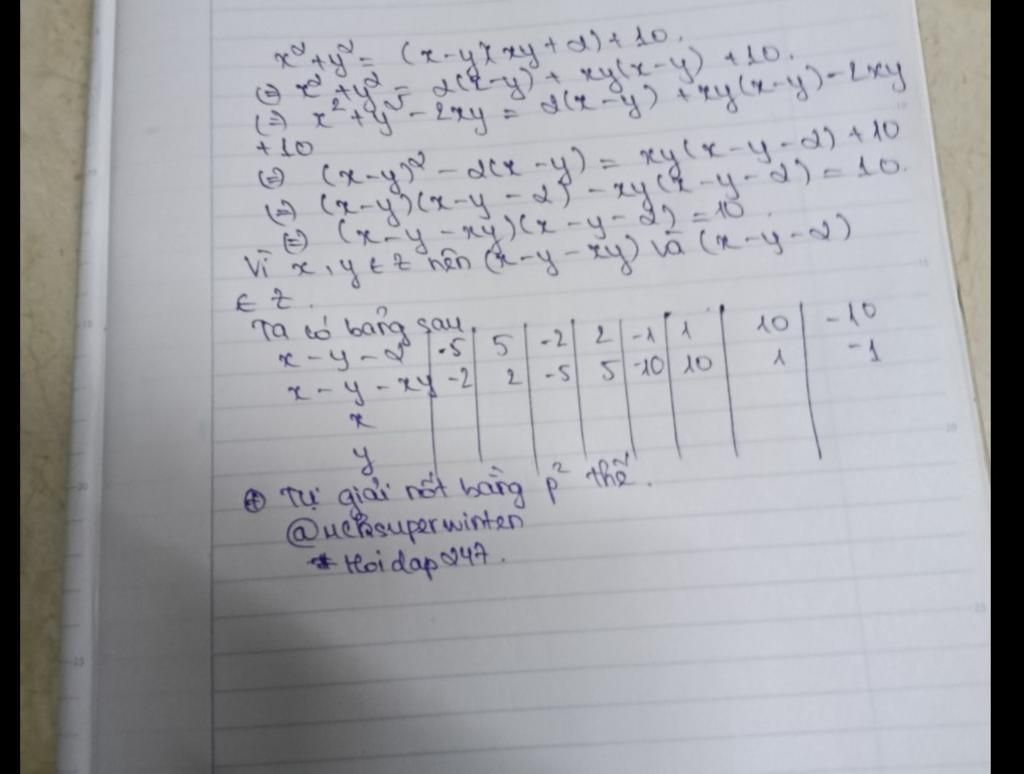 x² + y² = (x-y)(xy+2)+10.
(=) x² + y² = 2(x-y) + xy(x-y) +10.
(=) x² + y² - 2xy = 2(x-y) + xy(x-y) - 2xy
+10
(=) (x-y)² - 2(x-y) = xy(x-y-2) +10
(=) (x-y)(x-y-2) - xy(x-y-2) = 10.
(=) (x-y-xy)(x-y-2) = 10.
Vì x, y ∈ Z nên (x-y-xy) và (x-y-2)
∈ Z.
Ta có bảng sau
x-y-2 | -5 | 5 | -2 | 2 | -1 | 1 | 10 | -10
x-y-xy | -2 | 2 | -5 | 5 | -10 | 10 | 1 | -1
x
y
⊕ Tự giải nốt bằng p² thế.
* Hoidap247.